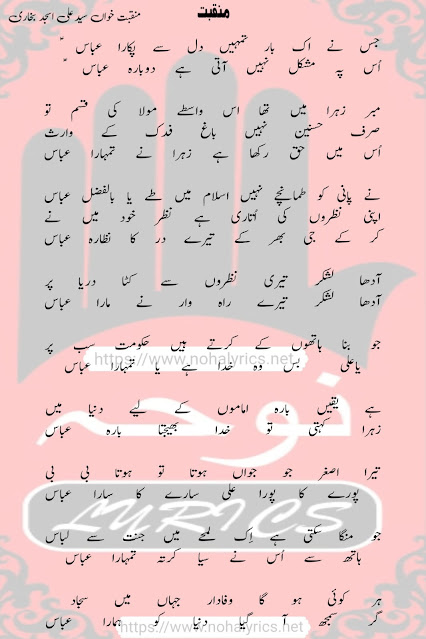 منقبت
منقبت خواں سید علی امجد بخاری
جس نے اک بار تمہیں دل سے پکارا عباسؑ
اُس پہ مشکل نہیں آتی ہے دوبارہ عباسؑ
مہر زہرا میں تھا اس واسطے مولا کی قسم تو
صرف حسنین نہیں باغ فدک کے وارث
اُس میں حق رکھا ہے زہرا نے تمہارا عباس
نے پانی کو طمانچے نہیں اسلام میں طے یا بالفضل عباس
اپنی نظروں کی اُتاری ہے نظر خود میں نے
کر کے جی بھر کے تیرے در کا نظارہ عباس
آدھا لشکر تیری نظروں سے کٹا دریا پر
آدھا لشکر تیرے راہ وار نے مارا عباس
جو بنا ہاتھوں کے کرتے ہیں حکومت سب پر
https://www.nohalyrics.net
یاعلی بس وہ خدا ہے یا تمہارا عباس
ہے یقیں بارہ اماموں کے لیے دنیا میں
نوحہ
زہرا کہتی تو خدا بھیجتا بارہ عباس
تیرا اصغر جو جواں ہوتا تو ہوتا بی بی
پورے کا پورا علی سارے کا سارا عباس
LYRICS
جو منگا سکتی ہے اِک لمحے میں جنت سے لباس
ہاتھ سے اُس نے سیا کرتہ تمہارا عباس
ہر کوئی ہو گا وفادار جہاں میں سجاد
گر سمجھ آ گیا دنیا کو ہمارا عباس
https://www.nohalyrics.net